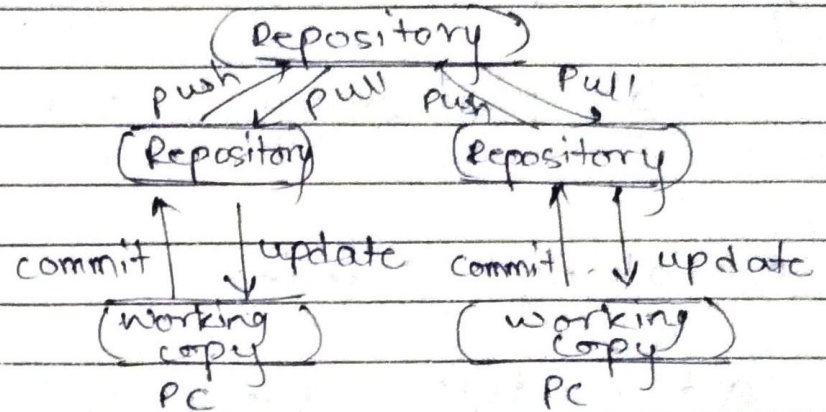 Repository
push pull push pull
Repository Repository
commit update commit update
working copy working copy
PC PC